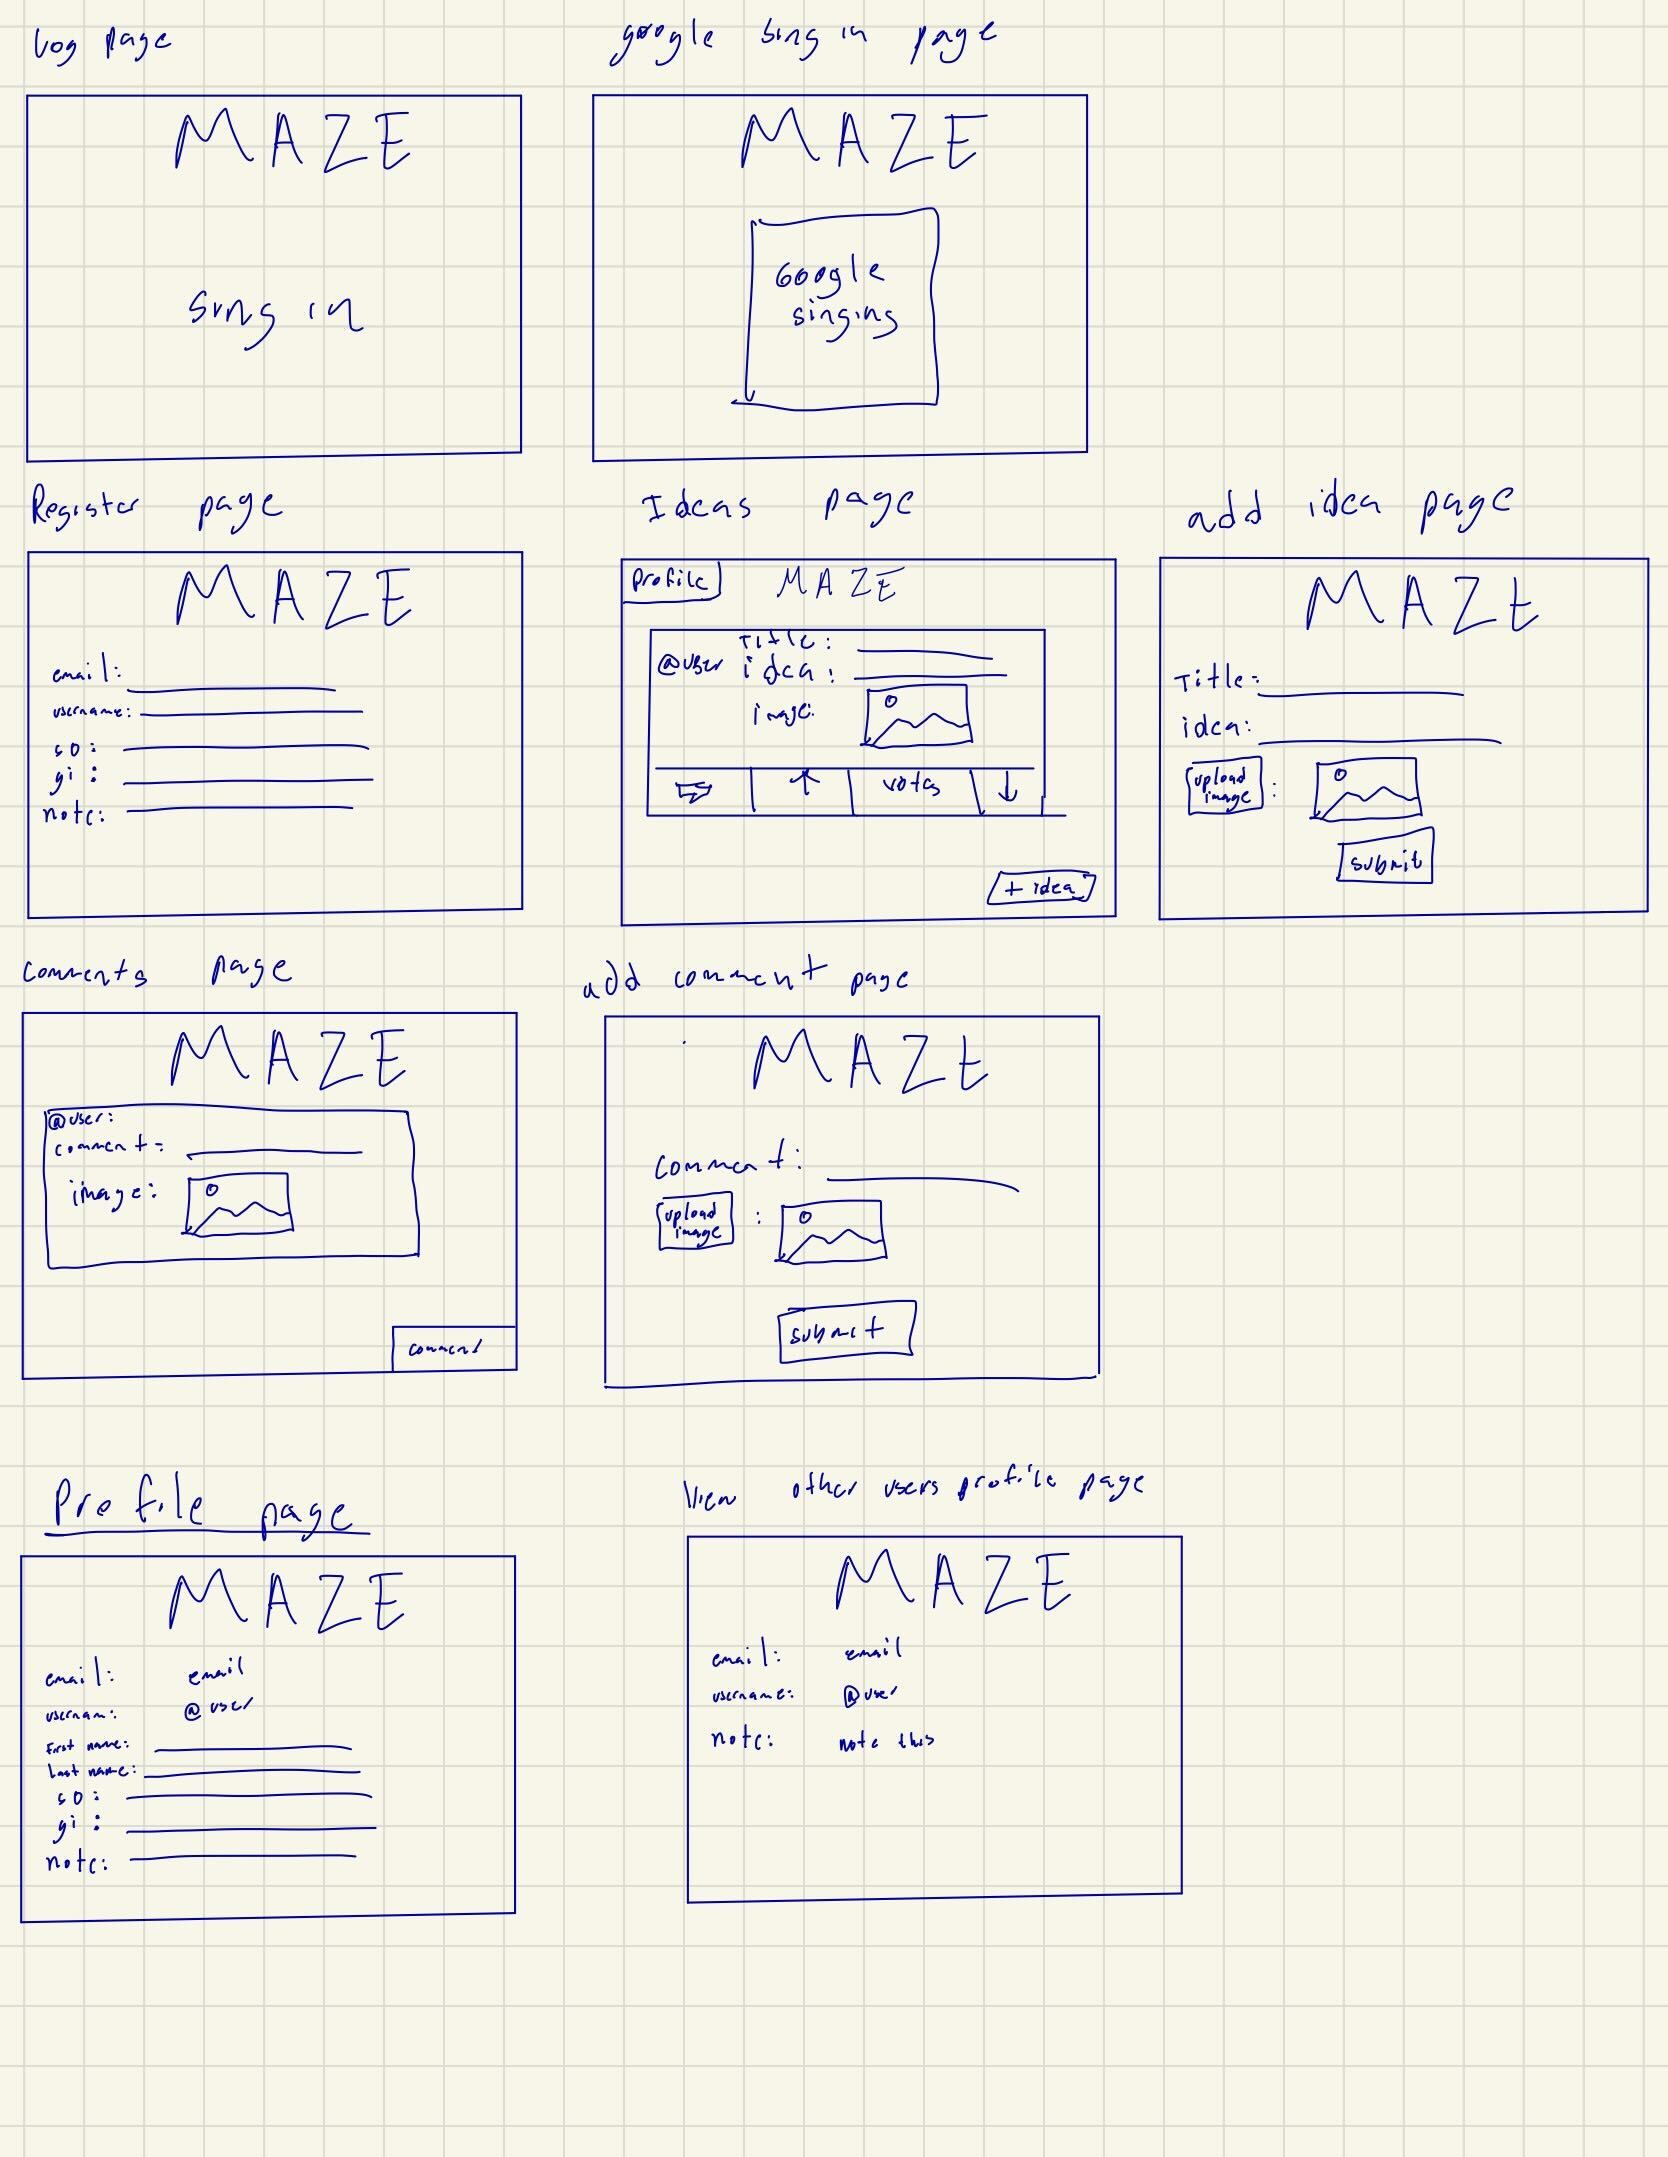 log page
google sing in page
MAZE
sing in
MAZE
Google
singing
Register page
MAZE
email:
username:
so:
gi:
note:
Ideas page
profile
MAZE
@user
Title:
idea:
image:
votes
+ idea
add idea page
MAZE
Title:
idea:
upload
image :
submit
comments page
MAZE
@user:
comment:
image:
comment
add comment page
MAZE
comment:
upload
image :
submit
Profile page
MAZE
email: email
usernam: @user
first name:
Last name:
so:
gi:
note:
View other users profile page
MAZE
email: email
username: @user
note: note this